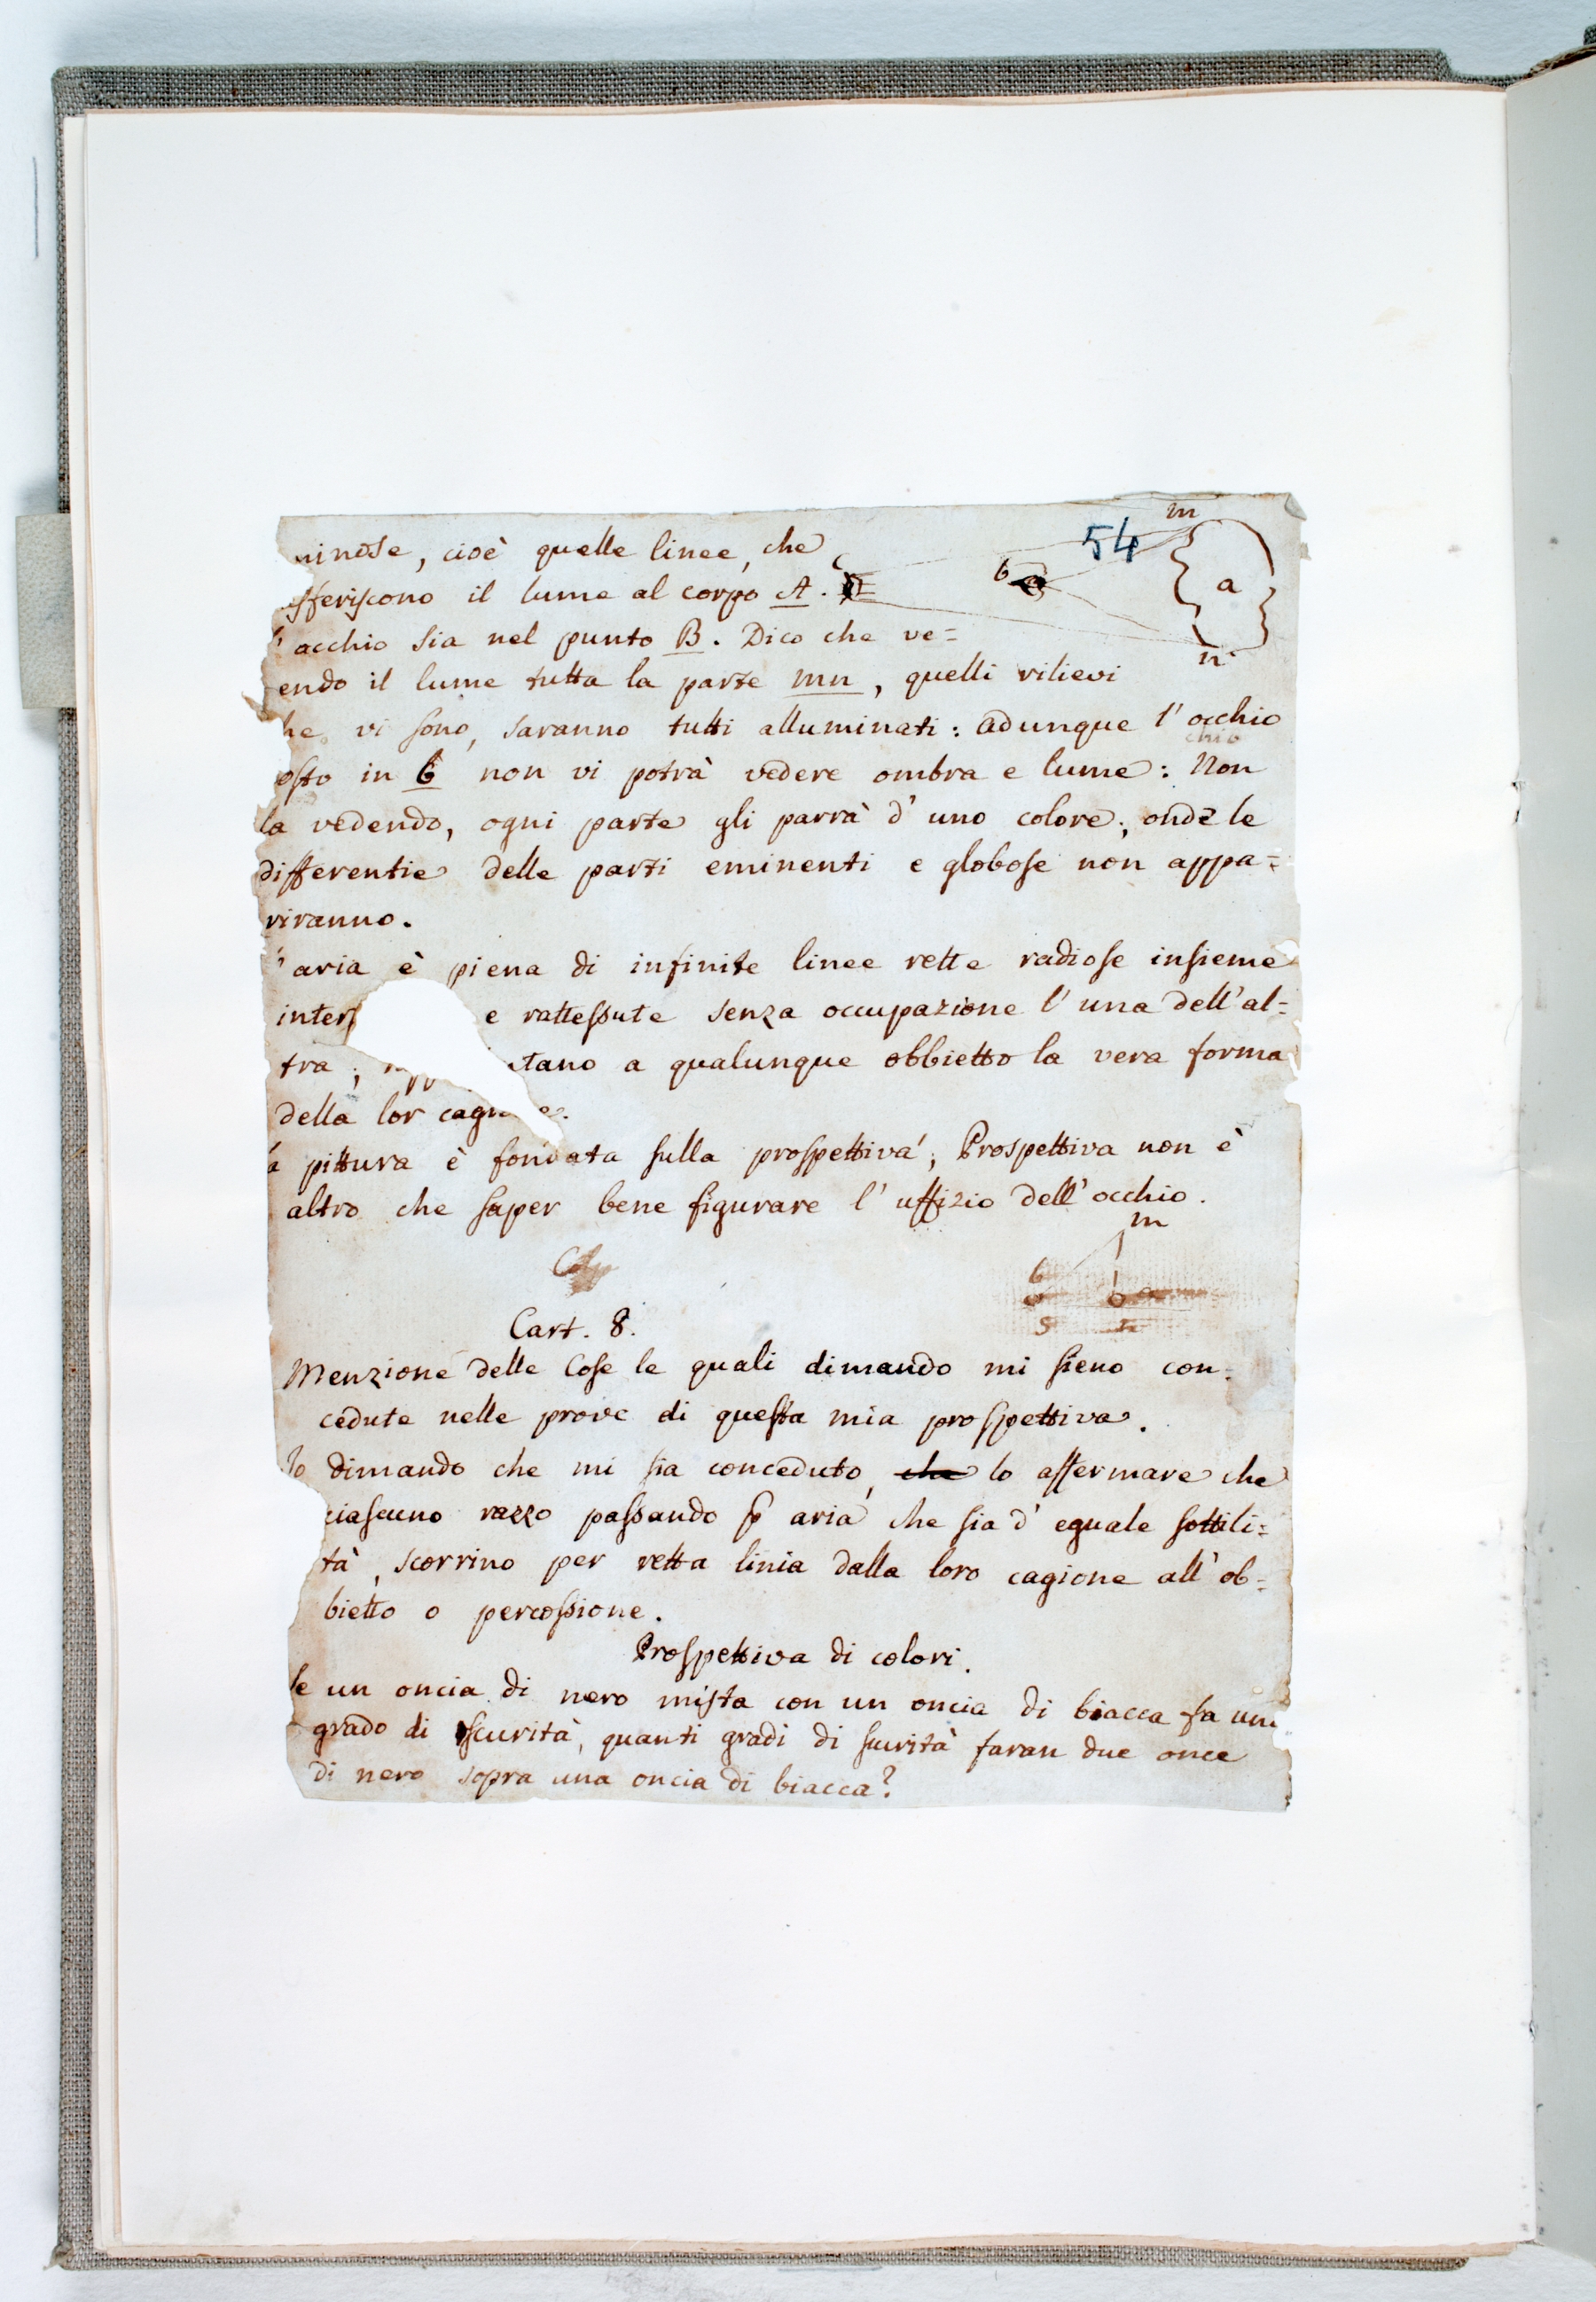 54
minose, cioè quelle linee, che
sferiscono il lume al corpo A.
l' occhio sia nel punto B. Dico che ve=
endo il lume tutta la parte mn, quelli rilievi
he vi sono, saranno tutti alluminati: adunque l' occhio
chio
osto in b non vi potrà vedere ombra e lume: Non
la vedendo, ogni parte gli parrà d' uno colore; onde le
differentie delle parti eminenti e globose non appa=
riranno.
' aria è piena di infinite linee rette radiose insieme
inters e rattessute senza occupazione l' una dell' al=
tra; tano a qualunque obbietto la vera forma
della lor cag
a pittura è fondata sulla prospettiva; Prospettiva non è
altro che saper bene figurare l' uffizio dell' occhio.
Cart. 8.
Menzione delle cose le quali dimando mi sieno con=
cedute nelle prove di questa mia prospettiva.
Io dimando che mi sia conceduto, che lo affermare che
ciascuno razzo passando p aria che sia d' eguale sottili=
tà, scorrino per retta linia dalla loro cagione all' ob=
bietto o percossione.
Prospettiva di colori.
Se un oncia di nero mista con un oncia di biacca fa un
grado di scurità, quanti gradi di scurità faran due once
di nero sopra una oncia di biacca?
m
b
a
n
m
b